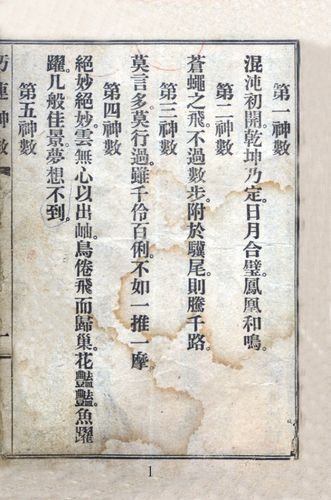 第一神數
混沌初開乾坤乃定。日月合璧。鳳凰和鳴。
第二神數
蒼蠅之飛不過數步。附於驥尾。則騰千路。
第三神數
莫言多莫行過。雖千伶百俐。不如一推一摩
第四神數
絕妙絕妙。雲無心以出岫。鳥倦飛而歸巢。花豔豔。魚躍
躍。几般佳景。夢想不到。
第五神數
神數
一
1